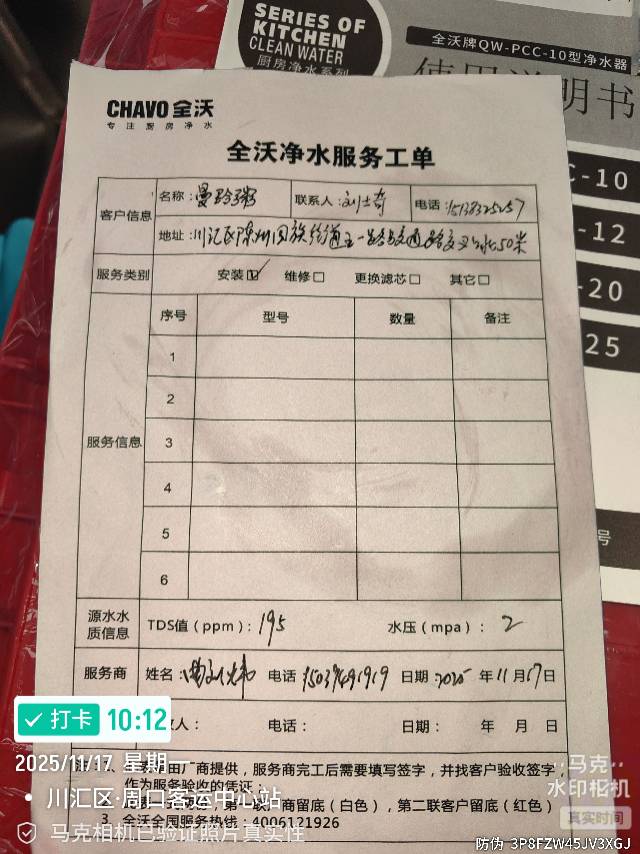 SERIES OF
KITCHEN
CLEAN WATER
厨房净水系列
全沃牌QW-PCC-10型净水器
使用说明书
C-10
-12
-20
25
号
CHAVO 全沃
专注厨房净水
全沃净水服务工单
客户信息
名称:
联系人:刘士奇
电话:
地址:川汇区陈州回族街道
服务类别
安装☑ 维修□ 更换滤芯□ 其它□
服务信息
序号 型号 数量 备注
1
2
3
4
5
6
源水水质信息
TDS值(ppm):195 水压(mpa):2
服务商
姓名: 电话 15039491919 日期:2025年11月17日
收人: 电话: 日期: 年 月 日
由厂商提供,服务商完工后需要填写签字,并找客户验收签字,
作为服务验收的凭证
商留底(白色),第二联客户留底(红色)
3、全沃全国服务热线:4006121926
打卡 10:12
2025/11/17 星期一
川汇区·周口客运中心站
马克相机已验证照片真实性
马克
水印相机
真实时间
防伪 3P8FZW45JV3XGJ